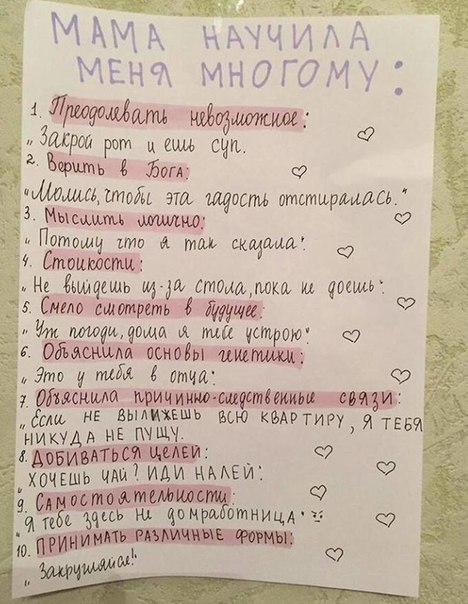 МАМА НАУЧИЛА
МЕНЯ МНОГОМУ:
1. Преодолевать невозможное:
„Закрой рот и ешь суп.
2. Верить в Бога:
„Молись, чтобы эта гадость отстиралась."
3. Мыслить логично:
„Потому что я так сказала".
4. Стойкости:
„Не выйдешь из-за стола, пока не доешь".
5. Смело смотреть в будущее:
„Уж погоди, дома я тебе устрою".
6. Объяснила основы генетики:
„Это у тебя в отца".
7. Объяснила причинно-следственные связи:
„ЕСЛИ НЕ ВЫЛИЖЕШЬ ВСЮ КВАРТИРУ, Я ТЕБЯ
НИКУДА НЕ ПУЩУ.
8. ДОБИВАТЬСЯ ЦЕЛЕЙ:
„ХОЧЕШЬ ЧАЙ? ИДИ НАЛЕЙ".
9. Самостоятельности:
„Я тебе здесь не домработница"
10. ПРИНИМАТЬ РАЗЛИЧНЫЕ ФОРМЫ:
„Закругляйся!"